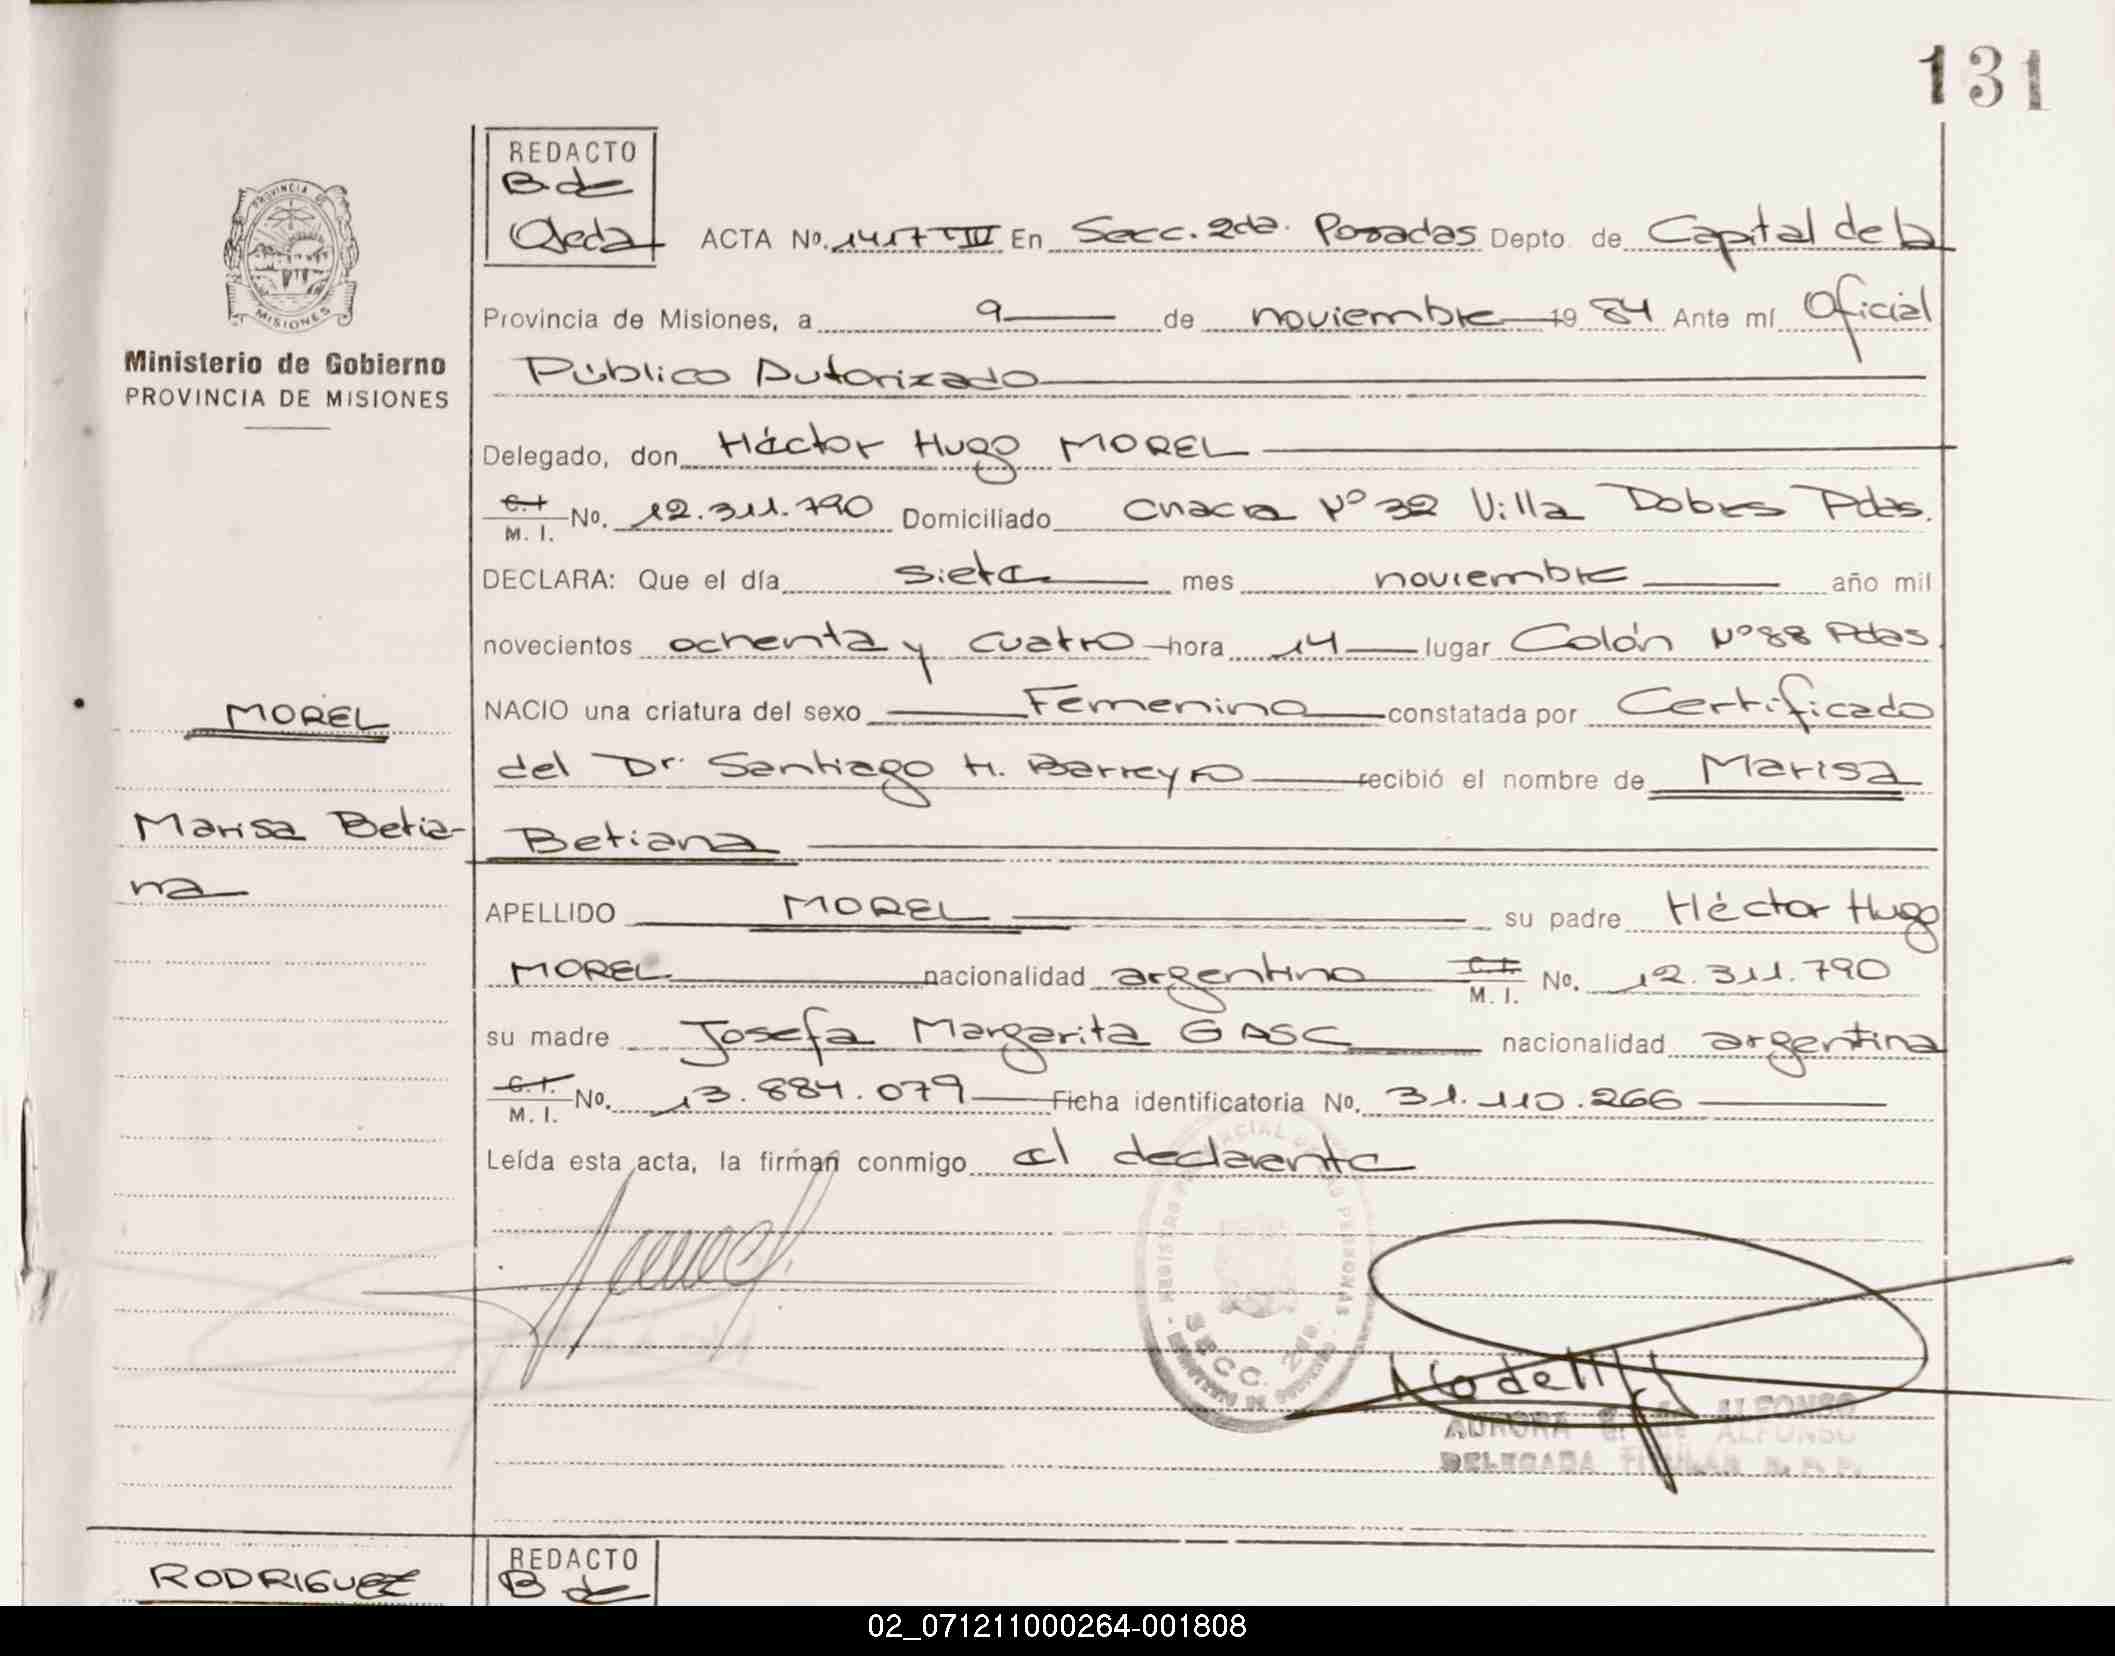 131
REDACTO
B. de
Ojeda
ACTA No. 1417 T III En Secc. 2da. Posadas Depto. de Capital de la
PROVINCIA DE
MISIONES
Provincia de Misiones, a 9 de noviembre 1984 Ante mí Oficial
Ministerio de Gobierno
PROVINCIA DE MISIONES
Público Autorizado
Delegado, don Héctor Hugo MOREL
C. I. M. I. No. 12.311.790 Domiciliado Chacra Nº 32 Villa Dobres Pdas.
DECLARA: Que el día siete mes noviembre año mil
novecientos ochenta y cuatro hora 14 lugar Colón Nº 88 Pdas
MOREL
NACIO una criatura del sexo Femenino constatada por Certificado
del Dr. Santiago H. Barreyro recibió el nombre de Marisa
Marisa Betia-
na
Betiana
APELLIDO MOREL su padre Héctor Hugo
MOREL nacionalidad argentino C. I. M. I. No. 12.311.790
su madre Josefa Margarita GASC nacionalidad argentina
C. I. M. I. No. 13.884.079 Ficha identificatoria No. 31.110.266
Leída esta acta, la firman conmigo el declarante
SECC. 2da.
AURORA G. de ALFONSO
DELEGADA TITULAR R. P. P.
RODRIGUEZ
REDACTO
B. de
02_071211000264-001808